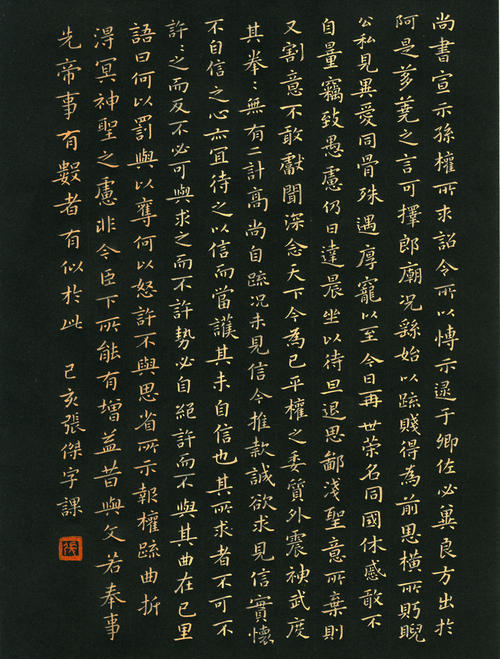 尚書宣示孫權所求詔令所以博示逮于卿佐必冀良方出於
阿是芻蕘之言可擇郎廟況繇始以疏賤得為前恩橫所眄睨
公私見異愛同骨殊遇厚寵以至今日再世榮名同國休慼敢不
自量竊致愚慮仍日達晨坐以待旦退思鄙淺聖意所棄則
又割意不敢獻聞深念天下今為已平權之委質外震神武度
其拳〻無有二計高尚自疏況未見信今推款誠欲求見信實懷
不自信之心亦宜待之以信而當護其未自信也其所求者不可不
許〻之而反不必可與求之而不許勢必自絕許而不與其曲在己里
語曰何以罰與以奪何以怒許不與思省所示報權疏曲折
得冥神聖之慮非今臣下所能有增益昔與文若奉事
先帝事有數者有似於此 己亥張傑字課
張